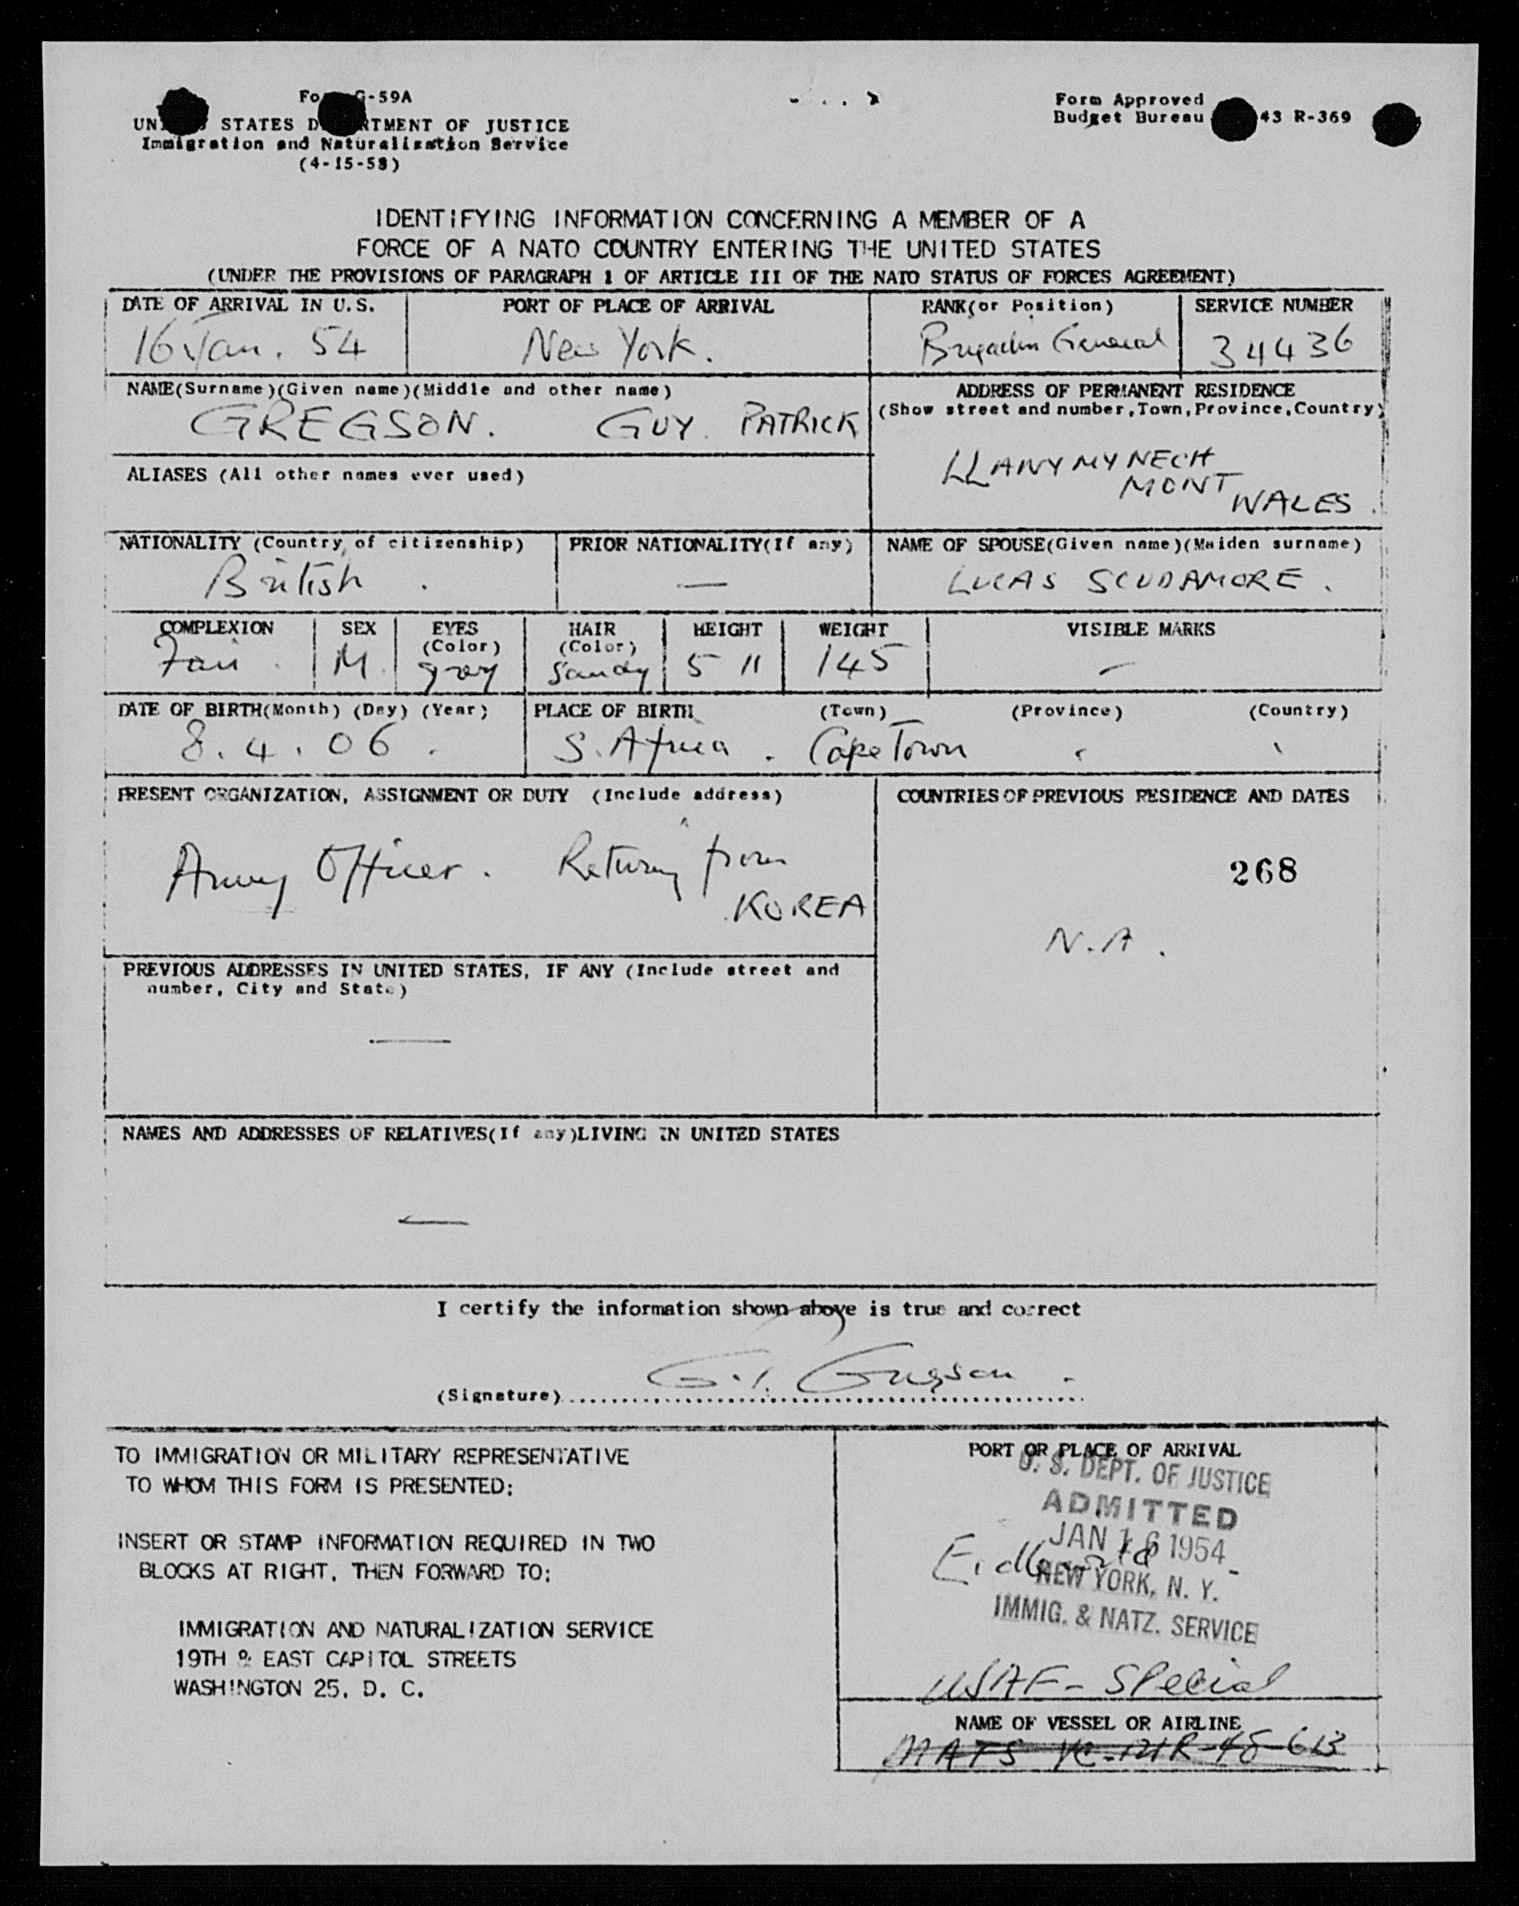 Form G-59A
UNITED STATES DEPARTMENT OF JUSTICE
Immigration and Naturalization Service
(4-15-53)
Form Approved
Budget Bureau 43 R-369
IDENTIFYING INFORMATION CONCERNING A MEMBER OF A
FORCE OF A NATO COUNTRY ENTERING THE UNITED STATES
(UNDER THE PROVISIONS OF PARAGRAPH 1 OF ARTICLE III OF THE NATO STATUS OF FORCES AGREEMENT)
DATE OF ARRIVAL IN U.S. PORT OF PLACE OF ARRIVAL RANK(or Position) SERVICE NUMBER
16 Jan. 54 New York. Brigadier General 34436
NAME(Surname)(Given name)(Middle and other name) ADDRESS OF PERMANENT RESIDENCE
(Show street and number, Town, Province, Country)
GREGSON. GUY. PATRICK
LLANYMYNECH
MONT
WALES.
ALIASES (All other names ever used)
NATIONALITY (Country of citizenship) PRIOR NATIONALITY(If any) NAME OF SPOUSE(Given name)(Maiden surname)
British. — LUCAS SCUDAMORE.
COMPLEXION SEX EYES (Color) HAIR (Color) HEIGHT WEIGHT VISIBLE MARKS
Fair. M. grey Sandy 5 11 145 —
DATE OF BIRTH(Month) (Day) (Year) PLACE OF BIRTH (Town) (Province) (Country)
8. 4. 06. S. Africa. Cape Town
PRESENT ORGANIZATION, ASSIGNMENT OR DUTY (Include address) COUNTRIES OF PREVIOUS RESIDENCE AND DATES
Army Officer. Returning from
KOREA
268
N.A.
PREVIOUS ADDRESSES IN UNITED STATES, IF ANY (Include street and
number, City and State)
—
NAMES AND ADDRESSES OF RELATIVES(If any)LIVING IN UNITED STATES
—
I certify the information shown above is true and correct
(Signature) G.P. Gregson.
TO IMMIGRATION OR MILITARY REPRESENTATIVE
TO WHOM THIS FORM IS PRESENTED:
INSERT OR STAMP INFORMATION REQUIRED IN TWO
BLOCKS AT RIGHT, THEN FORWARD TO:
IMMIGRATION AND NATURALIZATION SERVICE
19TH & EAST CAPITOL STREETS
WASHINGTON 25, D. C.
PORT OR PLACE OF ARRIVAL
U. S. DEPT. OF JUSTICE
ADMITTED
JAN 16 1954
NEW YORK, N. Y.
IMMIG. & NATZ. SERVICE
USAF - Special
NAME OF VESSEL OR AIRLINE
MATS